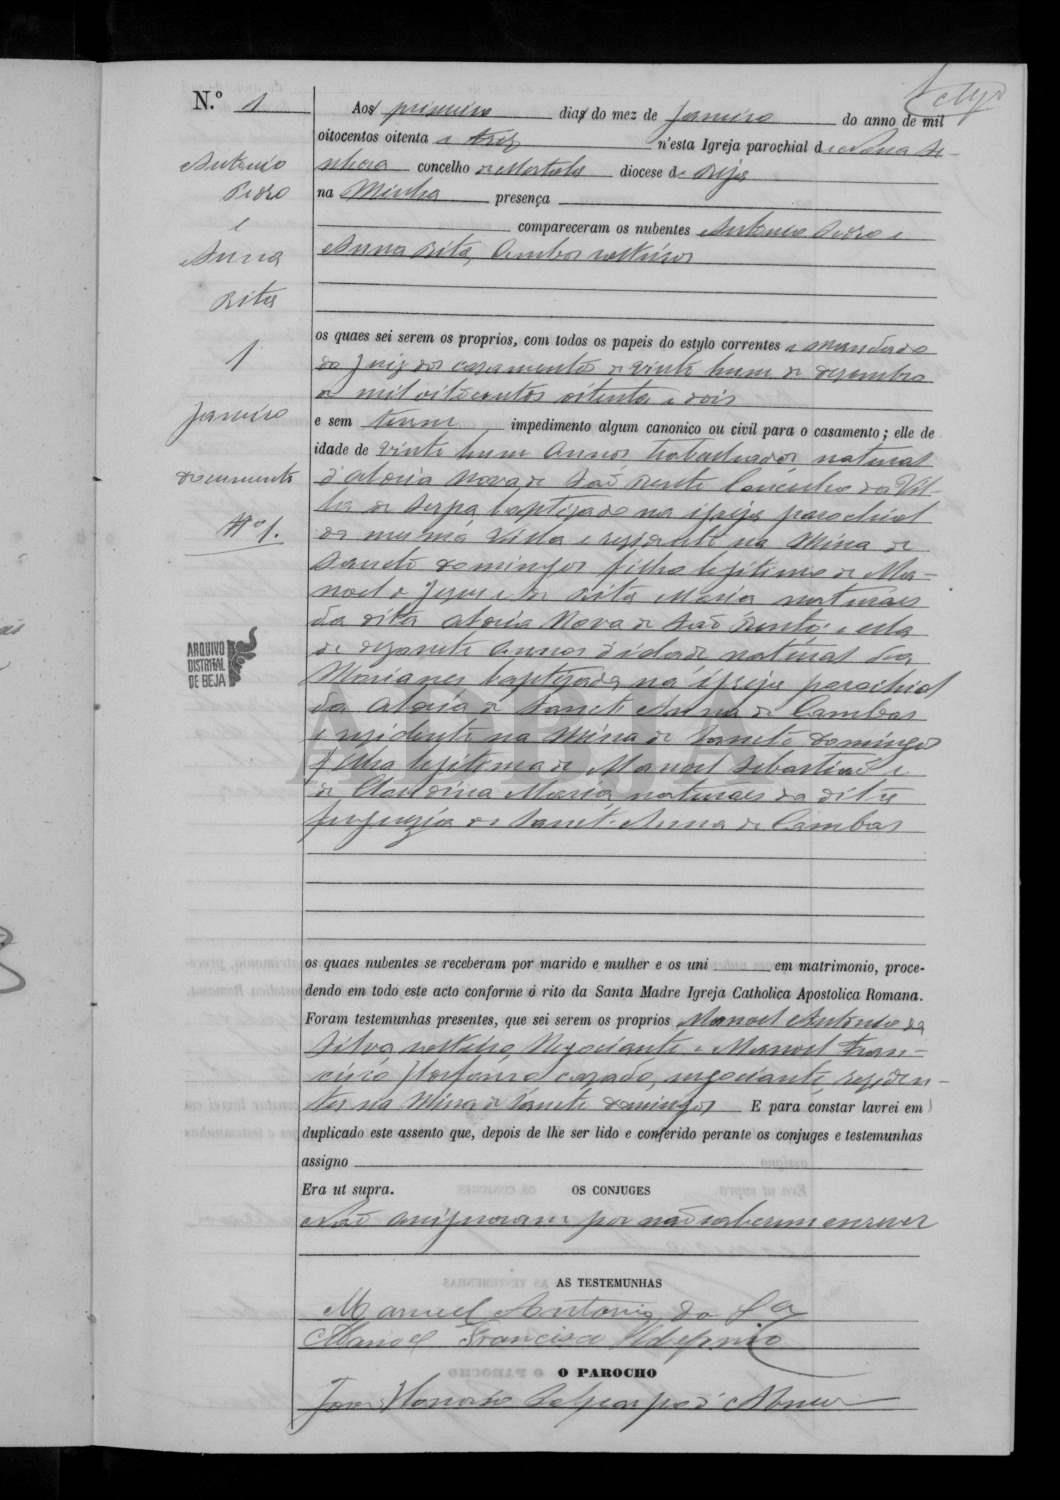 N.º 1
Antonio
Pedro
e
Anna
Rita
1
Janeiro
documento
Nº 1.
ARQUIVO
DISTRITAL
DE BEJA
ADBJA
Aos primeiro dias do mez de Janeiro do anno de mil
oitocentos oitenta e trez n'esta Igreja parochial de Nossa Se-
nhora concelho de Mertola diocese de Beja
na Minha presença
compareceram os nubentes Antonio Pedro e
Anna Rita, ambos solteiros
os quaes sei serem os proprios, com todos os papeis do estylo correntes e mandado
do Juiz dos casamentos de vinte hum de dezembro
de mil oitocentos oitenta e dois
e sem terem impedimento algum canonico ou civil para o casamento; elle de
idade de vinte hum annos trabalhador natural
d'aldeia Nova de São Bento Concelho da Vil-
la de Serpa baptizado na igreja parochial
da mesma Villa e rezidente na Mina de
Sancto Domingos filho legitimo de Ma-
noel de Jesus e de Rita Maria naturaes
da dita aldeia Nova de São Bento e ella
de dezasete annos d'idade natural das
Marianes baptizada na igreja parochial
da aldeia de Sancta Anna de Cambas
e rezidente na Mina de Sancto Domingos
filha legitima de Manoel Sebastião e
de Claudina Maria, naturaes da dita
freguezia de Sanct-Anna de Cambas
os quaes nubentes se receberam por marido e mulher e os uni em matrimonio, proce-
dendo em todo este acto conforme o rito da Santa Madre Igreja Catholica Apostolica Romana.
Foram testemunhas presentes, que sei serem os proprios Manoel Antonio da
Silva solteiro, Negociante e Manoel Fran-
cisco casado, negociante, reziden-
tes na Mina de Sancto Domingos E para constar lavrei em
duplicado este assento que, depois de lhe ser lido e conferido perante os conjuges e testemunhas
assigno
Era ut supra. OS CONJUGES
Não assignaram por não saberem escrever
AS TESTEMUNHAS
Manuel Antonio da Sa
Manoel Francisco
O PAROCHO
Honorio d'Abreu